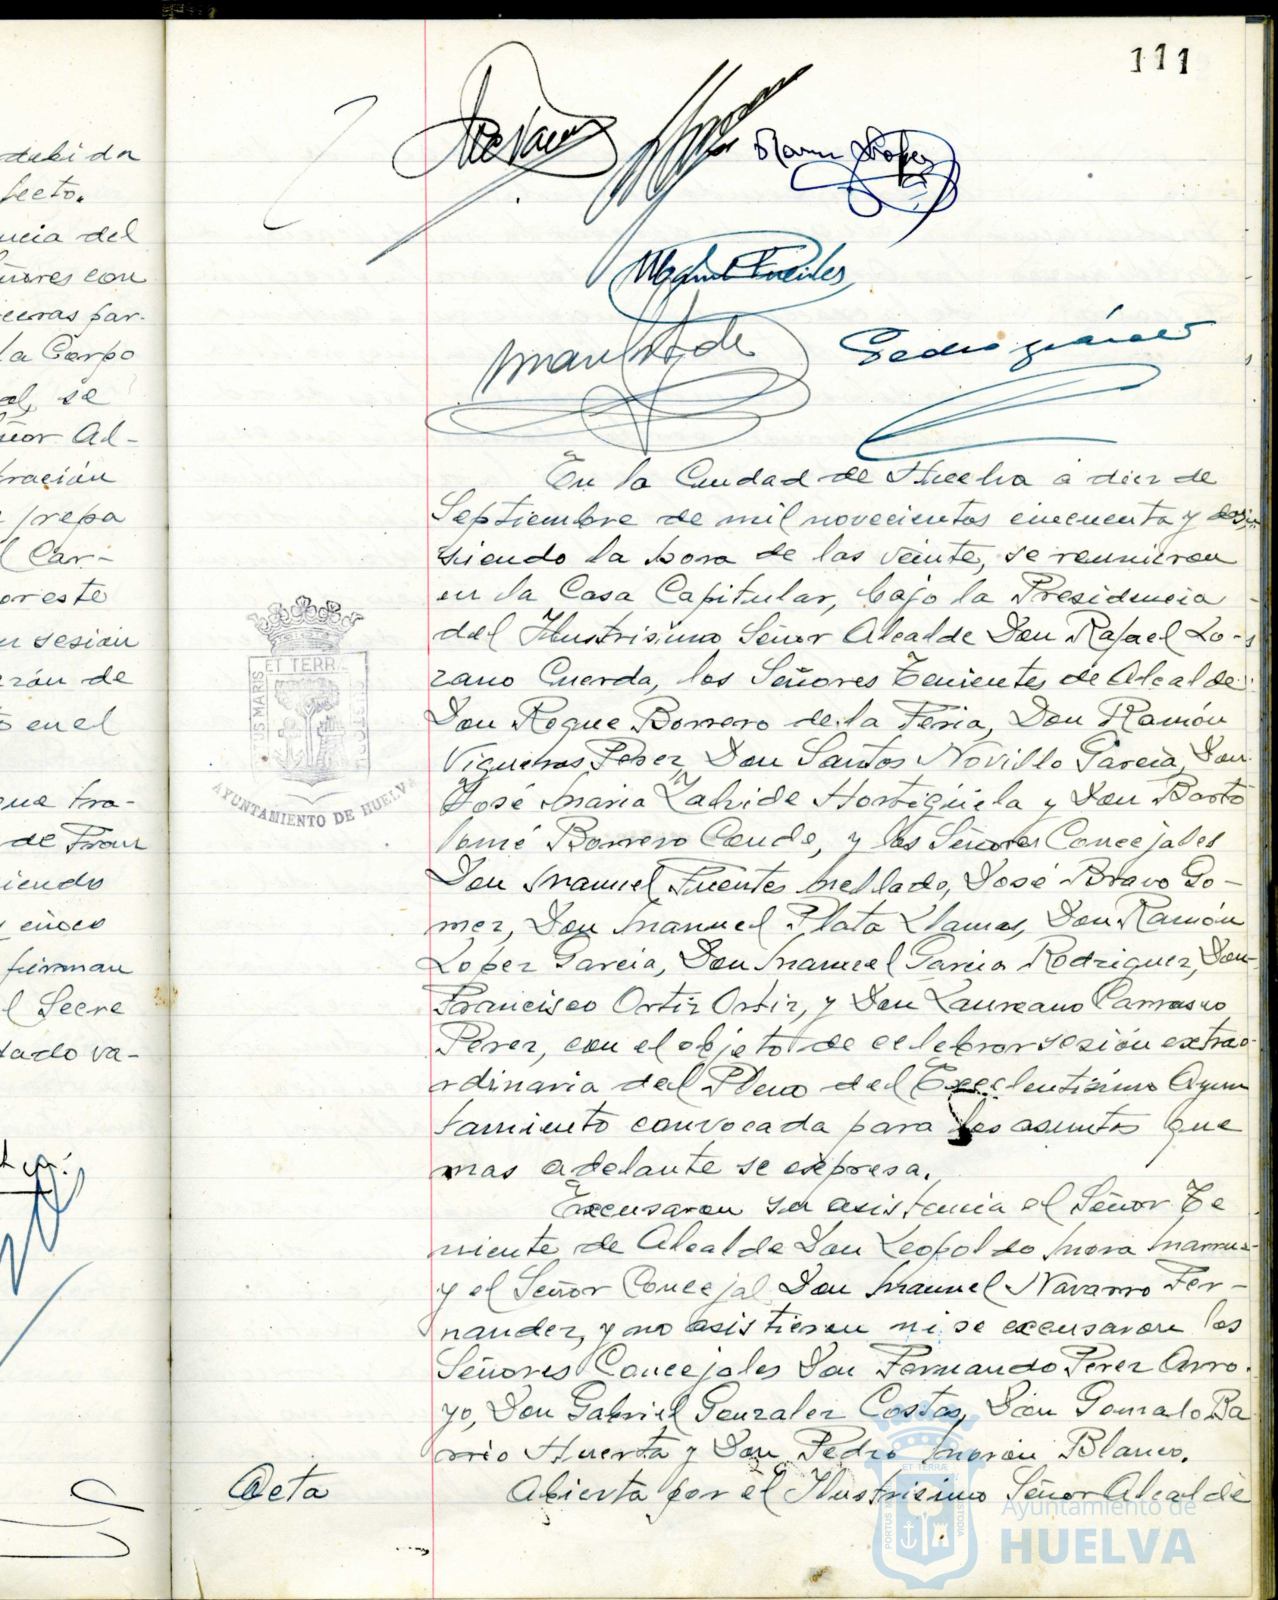 111
debida
fecto.
ncia del
ñores con
ceras par-
la Corpo
al, se
ñor Al-
tración
prepa
l Car-
por este
en sesión
rzón de
o en el
que tra-
de Fran
iendo
y cinco
firman
l Secre
tado va-
Pedro
En la Ciudad de Huelva a diez de
Septiembre de mil novecientos cincuenta y
siendo la hora de las veinte, se reunieron
en la Casa Capitular, bajo la Presidencia
del Ilustrisimo Señor Alcalde Don Rafael Lo-
zano Cuerda, los Señores Tenientes de Alcalde
Don Roque Borrero de la Feria, Don Ramón
Vigueras Perez, Don Santos Novillo García, Don
José Maria Zalvide Hortigüela y Don Barto
lomé Borrero Conde, y los Señores Concejales
Don Manuel Fuentes Mellado, José Bravo Go-
mez, Don Manuel Plata Llamas, Don Ramón
Lopez Garcia, Don Manuel Garcia Rodriguez, Don
Francisco Ortiz Ortiz, y Don Laureano Carrasco
Perez, con el objeto de celebrar sesión extrao-
rdinaria del Pleno del Excelentisimo Ayun
tamiento convocada para los asuntos que
mas adelante se expresa.
Excusaron su asistencia el Señor Te
niente de Alcalde Don Leopoldo Mora
y el Señor Concejal Don Manuel Navarro Fer-
nandez, y no asistieron ni se excusaron los
Señores Concejales Don Fernando Perez Arro-
yo, Don Gabriel Gonzalez Costas, Don Gonzalo Ba
rrio Huerta y Don Pedro Morón Blanco.
Acta
Abierta por el Ilustrisimo Señor Alcalde
PORTUS MARIS ET TERRÆ CUSTODIA
AYUNTAMIENTO DE HUELVA
Ayuntamiento de
HUELVA